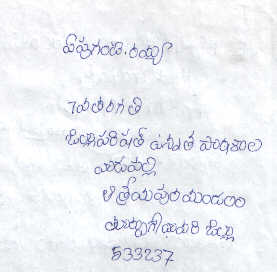 ఏపుగంటి. రమ్య
7వతరగతి
జిల్లాపరిషత్ ఉన్నత పాఠశాల
వాడపల్లి
ఆత్రేయపురంమండలం
తూర్పుగోదావరి జిల్లా
533237